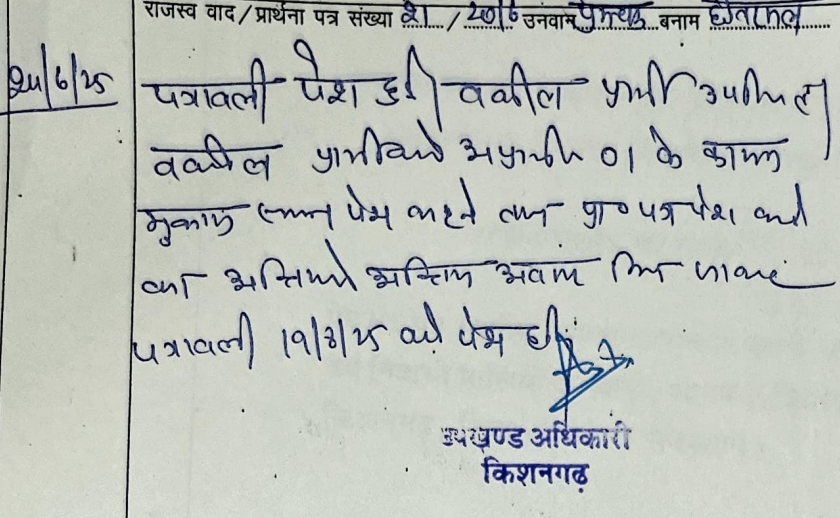 राजस्व वाद/प्रार्थना पत्र संख्या 21/2016 उनवान बनाम
24/6/25
पत्रावली पेश हुई। वकील प्रार्थी उपस्थित।
वकील प्रार्थी को अप्रार्थी 01 के कायम
मुकाम पेश करने प्रा० पत्र पेश करने
का अन्तिम अवसर दिया
पत्रावली 19/8/25 को पेश हो।
उपखण्ड अधिकारी
किशनगढ़